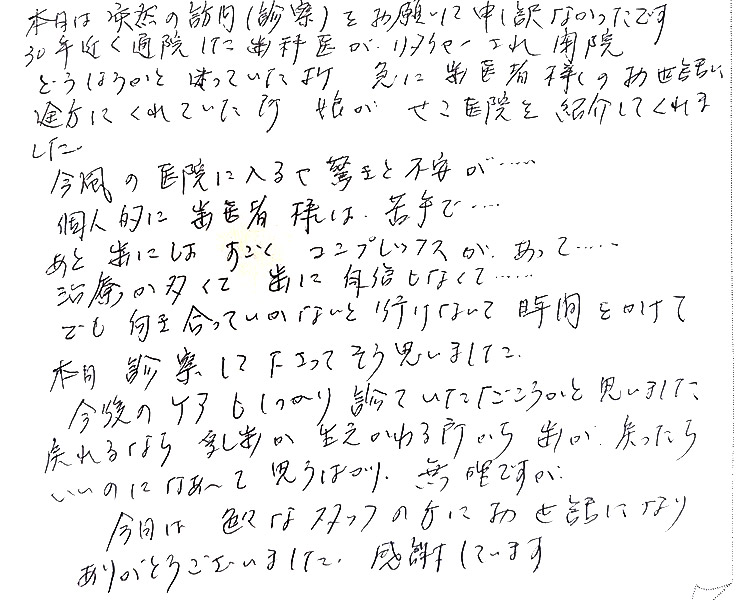 本日は突然の訪問(診察)をお願いして申し訳なかったです
30年近く通院した歯科医がリタイヤーされ閉院
どうしようかと困っていた所 急に歯医者様のお世話に
途方にくれていた所 娘が せこ医院を紹介してくれま
した。
今風の医院に入るや驚きと不安が……
個人的に歯医者様は、苦手で……
あと歯にはすごくコンプレックスが、あって……
治療が多くて 歯に自信もなくて……
でも 何を言っていいのかないと 行けないで 時間をかけて
本日 診察して下さってそう思いました。
今後のケアもしっかり診ていただこうかと思いました
戻れるなら 乳歯が 生えかわる所から 歯が、戻ったら
いいのになあ〜て 思うばかり、無理ですが、
今日は 色々なスタッフの方にお世話になり
ありがとうございました。感謝しています